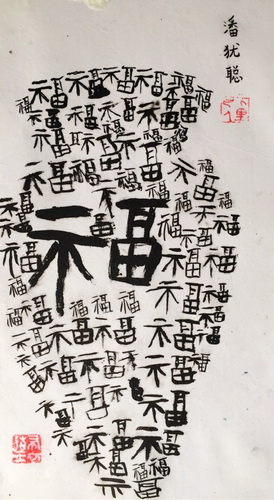 潘犹聪
福福福福福
福福福福福
福福福福
福福福
福福福福
福福福福
福福福
福福福福
福福福福福
福福福福
福福福福
福福福
福福福
福福
福福福